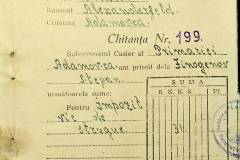 Raionul Alexanderfeld.
Comuna Adamovca
Chitanța Nr. 199.
Subsemnatul Casier al Primăriei
Adamovca am primit dela Zinogenov
Stepan.
următoarele sume:
SUMA
Pentru Impozit
vie de
struguc.
31